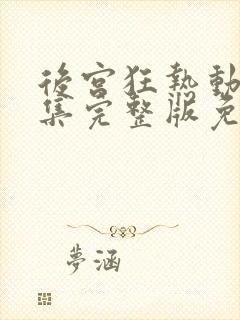 後宮狂熱動
集完整版免
夢涵